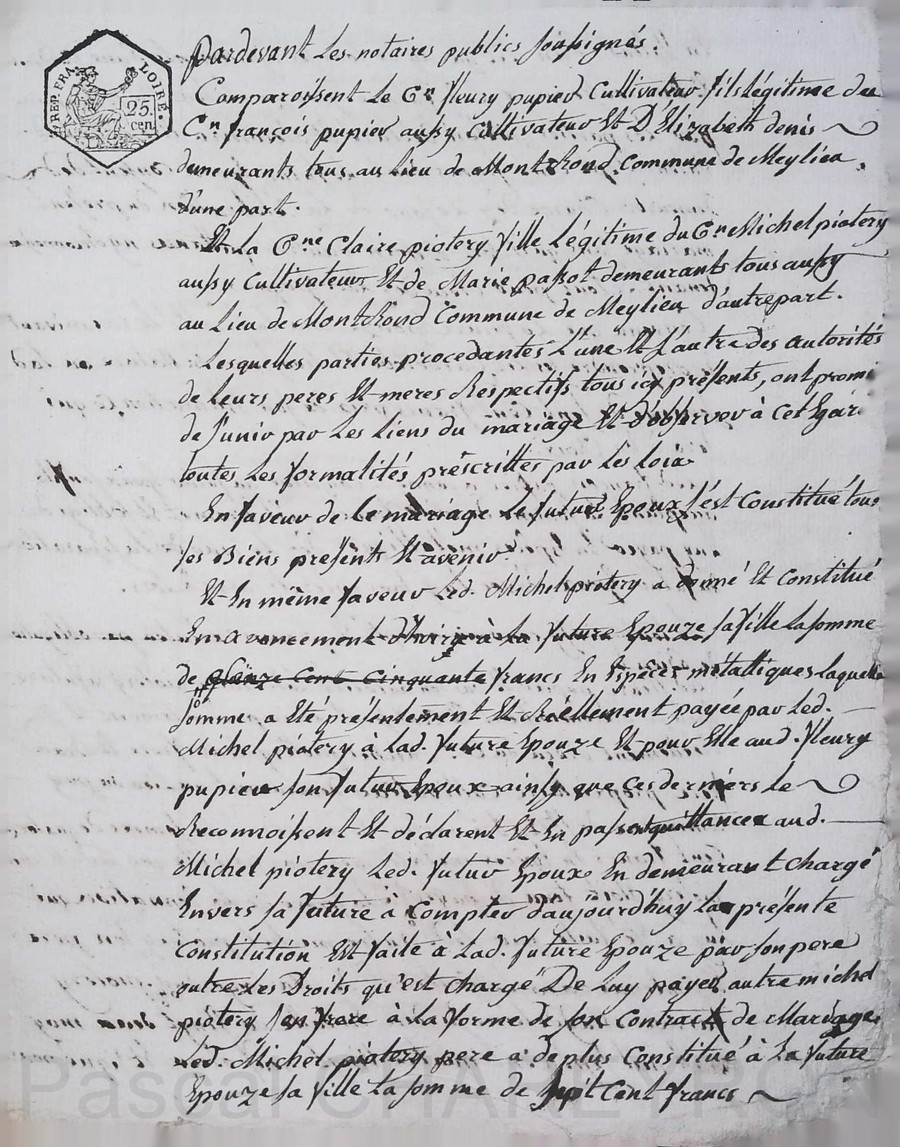 REP. FRA. LOIRE.
25.
cen.
Pardevant Les notaires publics soussignés.
Comparoissent Le Cn fleury pupier Cultivateur fils Légitime du
Cn françois pupier aussy Cultivateur Et D'Elizabeth denis
demeurants tous au Lieu de MontRond Commune de Meylieu
d'une part.
Et La Cne Claire piotery fille Légitime du Cn Michel piotery
aussy Cultivateur Et de Marie passot demeurants tous aussy
au Lieu de MontRond Commune de Meylieu d'autre part.
Lesquelles parties procedantes L'une Et L'autre des autorités
de Leurs peres Et meres Respectifs tous icy présents, ont promi
de s'unir par Les Liens du mariage Et d'observer à Cet Egar
toutes Les formalités préscrittes par les loix
En faveur de Ce mariage Le futur Epoux s'est Constitué tous
ses Biens présents Et avenir.
Et En même faveur Led. Michel piotery a donné Et Constitué
En avancement d'hoirie à La future Epouze sa fille La somme
de quinze Cent Cinquante francs En Espèces métalliques laquelle
somme a Eté présentement Et Réellement payée par Led.
Michel piotery à Lad. future Epouze Et pour Elle aud. fleury
pupier son futur Epoux ainsy que ces derniers le
Reconnoissent Et déclarent Et En passent quittance aud.
Michel piotery Led. futur Epoux En demeurant chargé
Envers sa future à Compter d'aujourd'huy La présente
Constitution Est faite à Lad. future Epouze par son pere
outre Les Droits qu'est chargé De Luy payer autre michel
piotery son frere à La forme de son Contract de Mariage
Led. Michel piotery pere a de plus Constitué à La future
Epouze sa fille La somme de Sept Cent francs